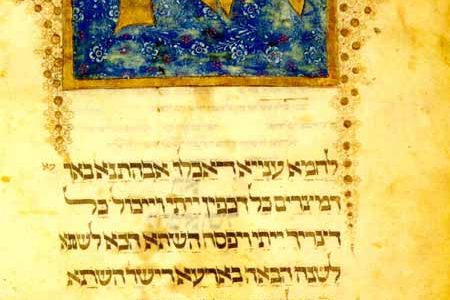 לחמא עניא די אכלו אבהתנא בארעא
דמצרים כל דכפין ייתי וייכול כל
דצריך ייתי ויפסח השתא הכא לשתא
לשנה הבאה בארעא דישר השתא